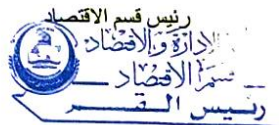 رئيس قسم الاقتصاد
الإدارة والاقتصاد
قسم الاقتصاد
رئيس القسم